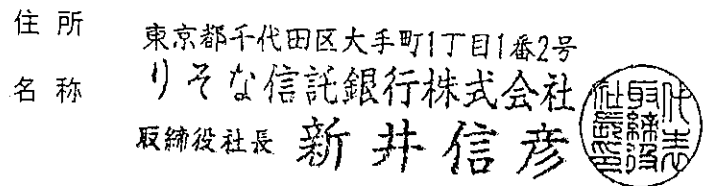 住所 東京都千代田区大手町1丁目1番2号
名称 りそな信託銀行株式会社
取締役社長 新井信彦
代表
取締役
社長印